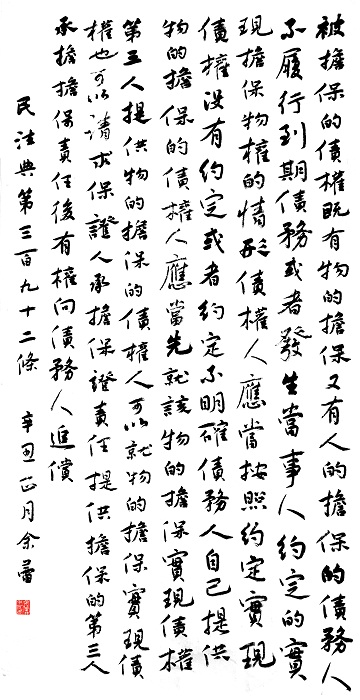 被擔保的債權既有物的擔保又有人的擔保的債務人
不履行到期債務或者發生當事人約定的實
現擔保物權的情形債權人應當按照約定實現
債權沒有約定或者約定不明確債務人自己提供
物的擔保的債權人應當先就該物的擔保實現債權
第三人提供物的擔保的債權人可以就物的擔保實現債
權也可以請求保證人承擔保證責任提供擔保的第三人
承擔擔保責任後有權向債務人追償
民法典第三百九十二條 辛丑正月余